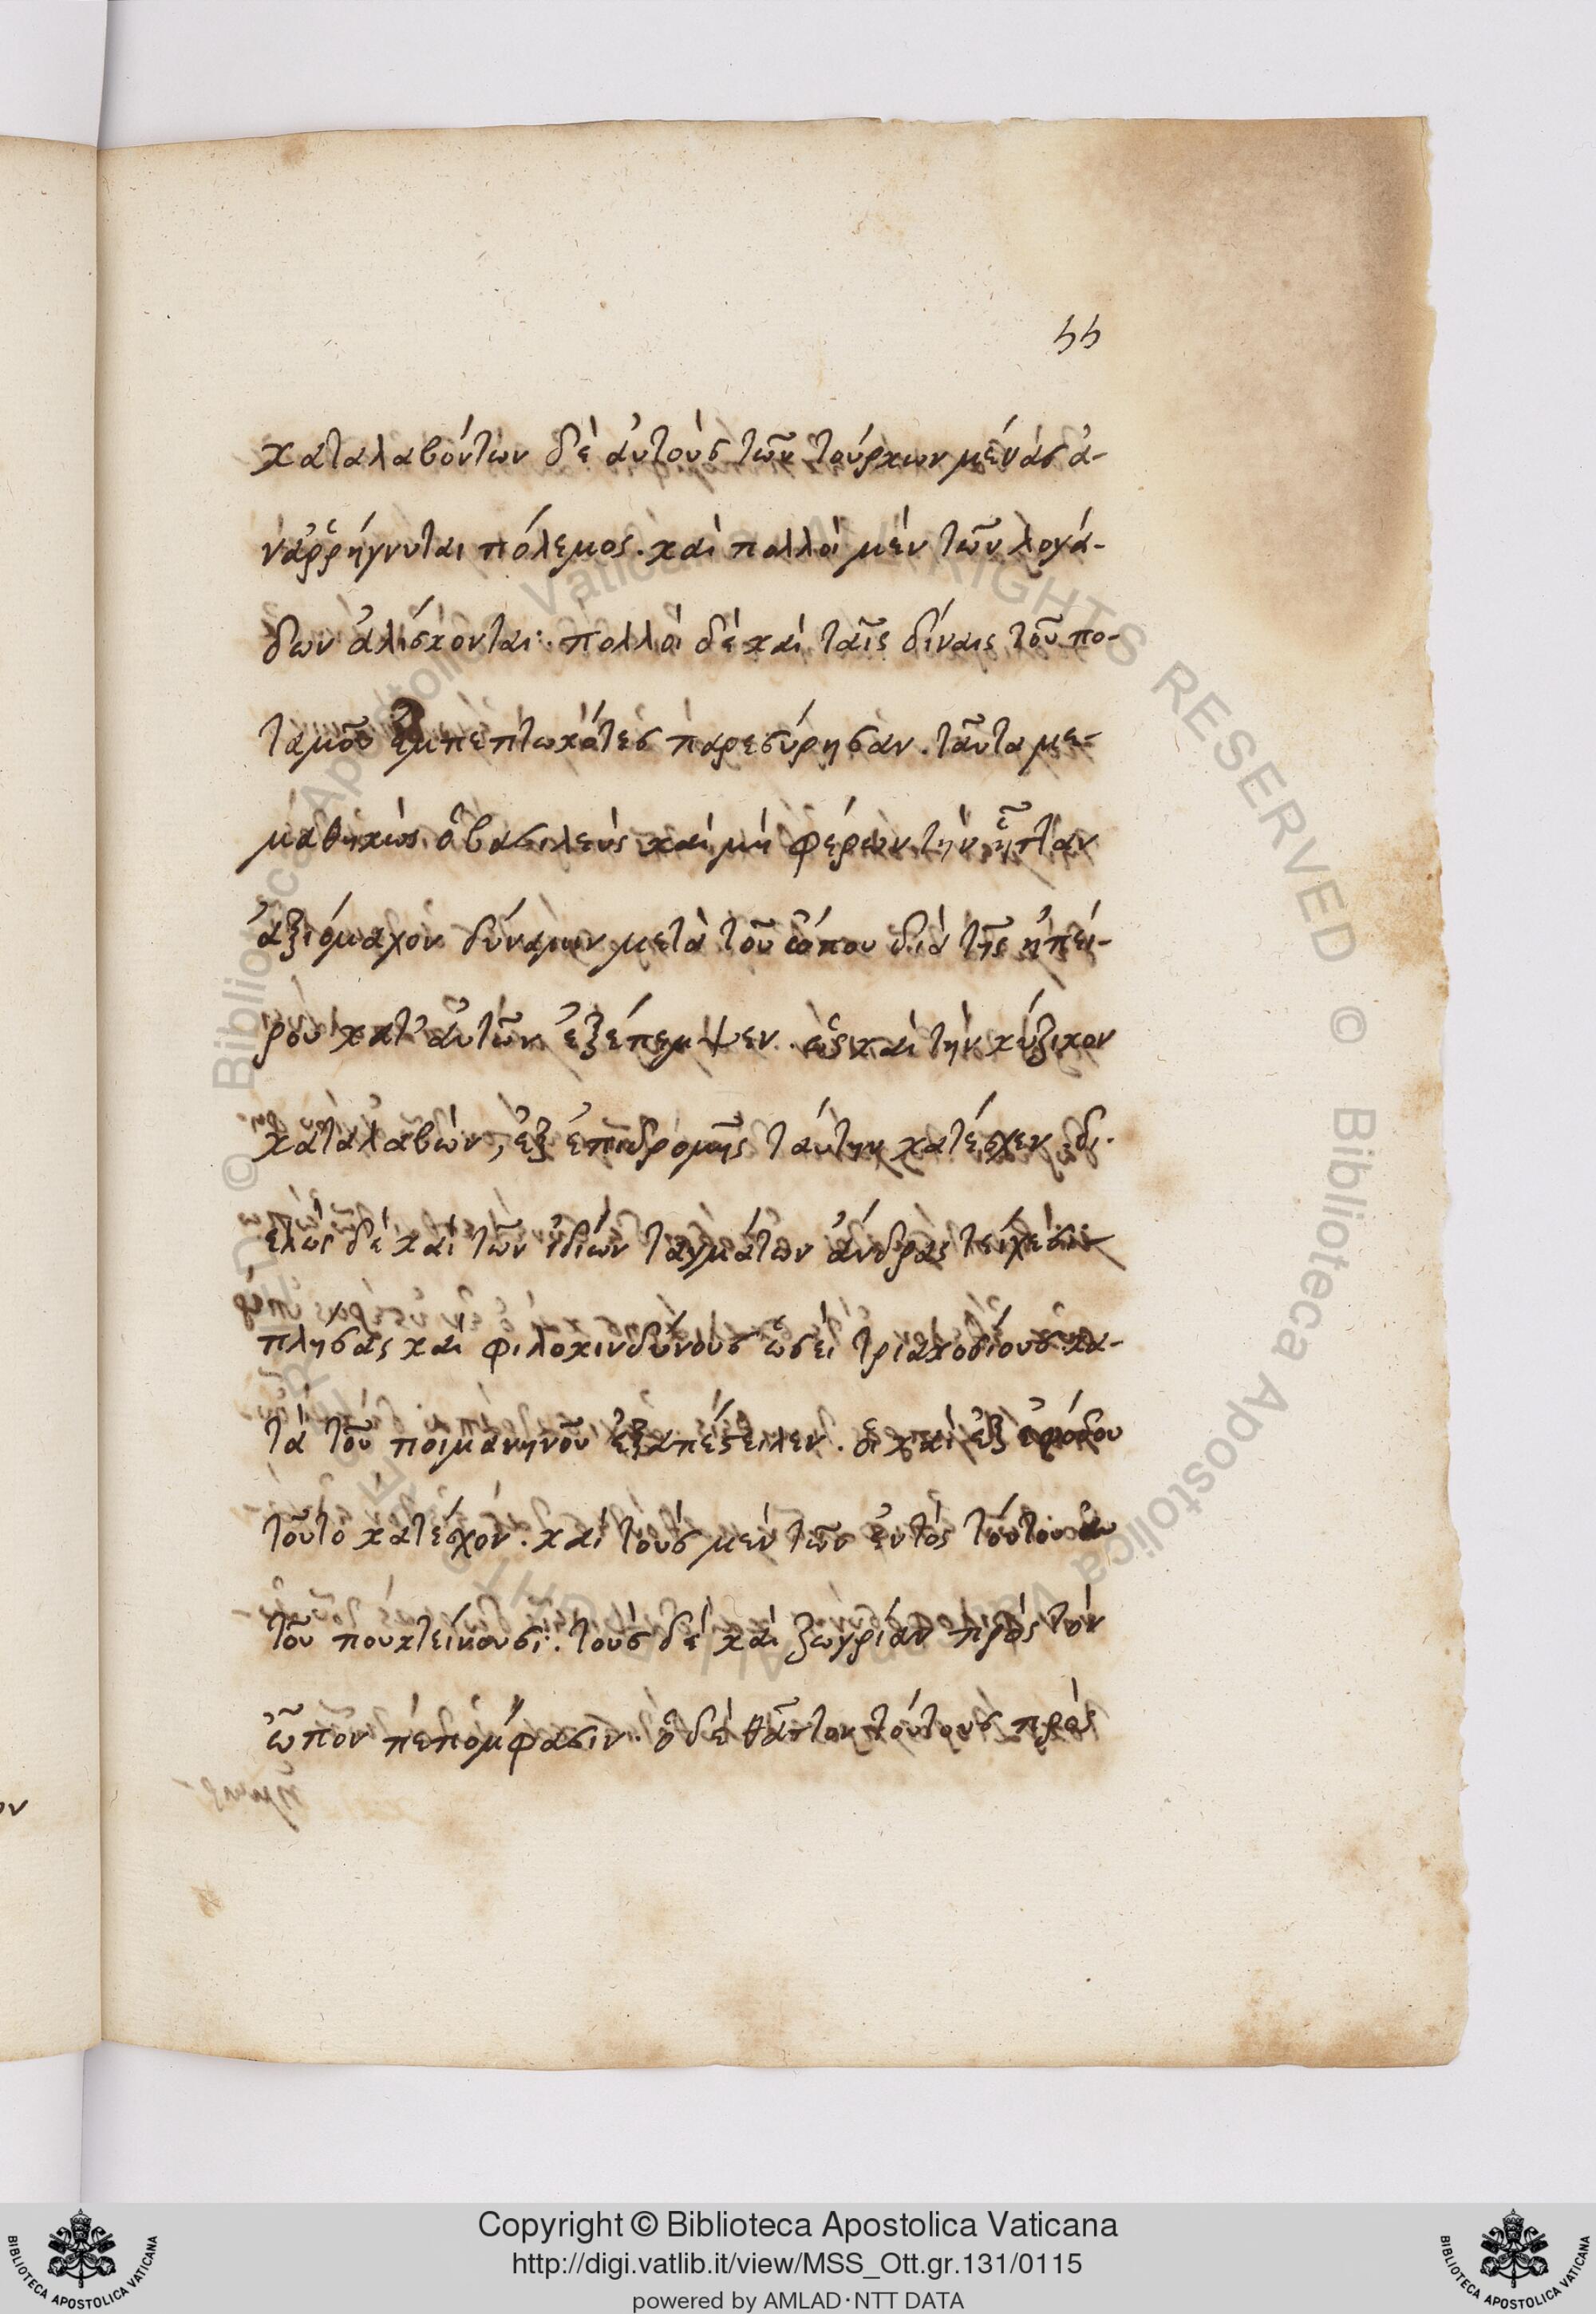 55
καταλαβόντων δὲ ἀυτοὺσ τῶν τούρκων μέγασ ἀ-
ναῤῥήγνυται πόλεμος. καὶ πολλοὶ μὲν τῶν λογά-
δων ἁλίσκονται. πολλοὶ δὲ καὶ ταῖς δίναις τοῦ πο-
ταμοῦ ἐμπεπτωκότεσ παρεσύρησαν. ταῦτα με-
μαθηκὼς ὁ βασιλεὺς καὶ μὴ φέρων τὴν ἧτταν
ἀξιόμαχον δύναμιν μετὰ τοῦ ὤπου διὰ τῆς ἠπεί-
ρου κατ' ἀυτῶν ἐξέπεμψεν. ὡς καὶ τὴν κύζικον
καταλαβὼν, ἐξ ἐπιδρομῆς ταύτην κατέσχεν. δι-
ελὼς δὲ καὶ τῶν ἰδίων ταγμάτων ἄνδρας τείχεσι-
πλήσας καὶ φιλοκινδύνουσ ὡσεὶ τριακοσίουσ κα-
τὰ τοῦ ποιμανηνοῦ ἐξαπέστειλεν. οἳ καὶ ἐξ ἐφόδου
τοῦτο κατέσχον. καὶ τοὺσ μὲν τῶν ἐντὸς τούτου
τοῦ πουκτείνουσι. τοὺσ δὲ καὶ ζωγρίαν πρὸς τὸν
ὦπον πεπόμφασιν. ὁ δὲ θᾶττον τούτουσ πρὸς
Copyright © Biblioteca Apostolica Vaticana
http://digi.vatlib.it/view/MSS_Ott.gr.131/0115
powered by AMLAD·NTT DATA
BIBLIOTECA APOSTOLICA VATICANA
BIBLIOTECA APOSTOLICA VATICANA